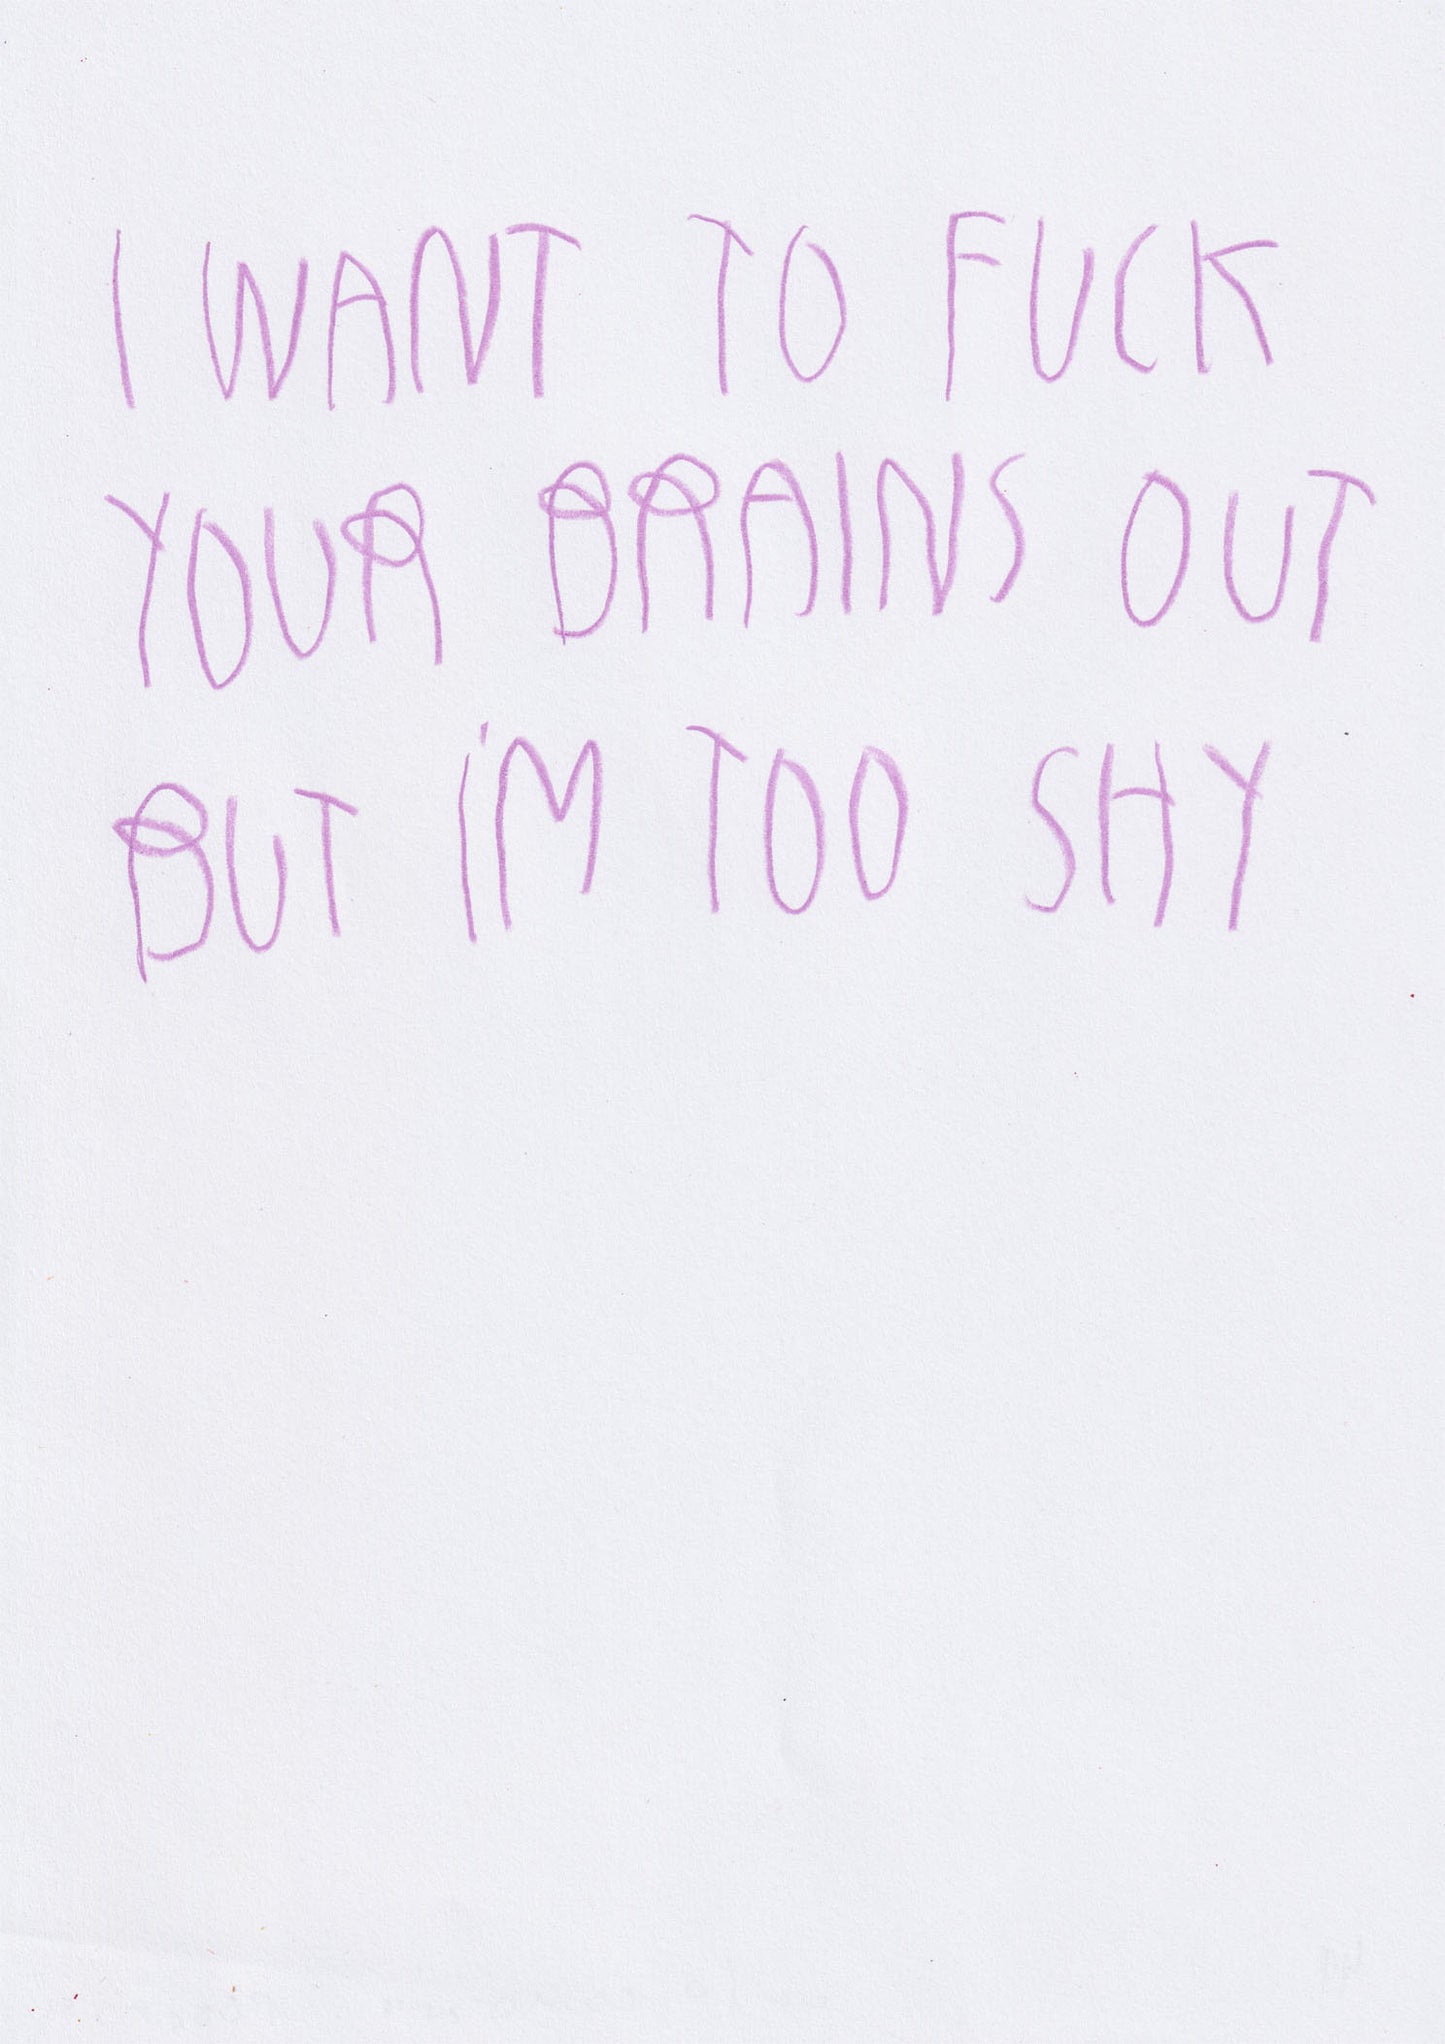 I WANT TO FUCK
YOUR BRAINS OUT
BUT I'M TOO SHY